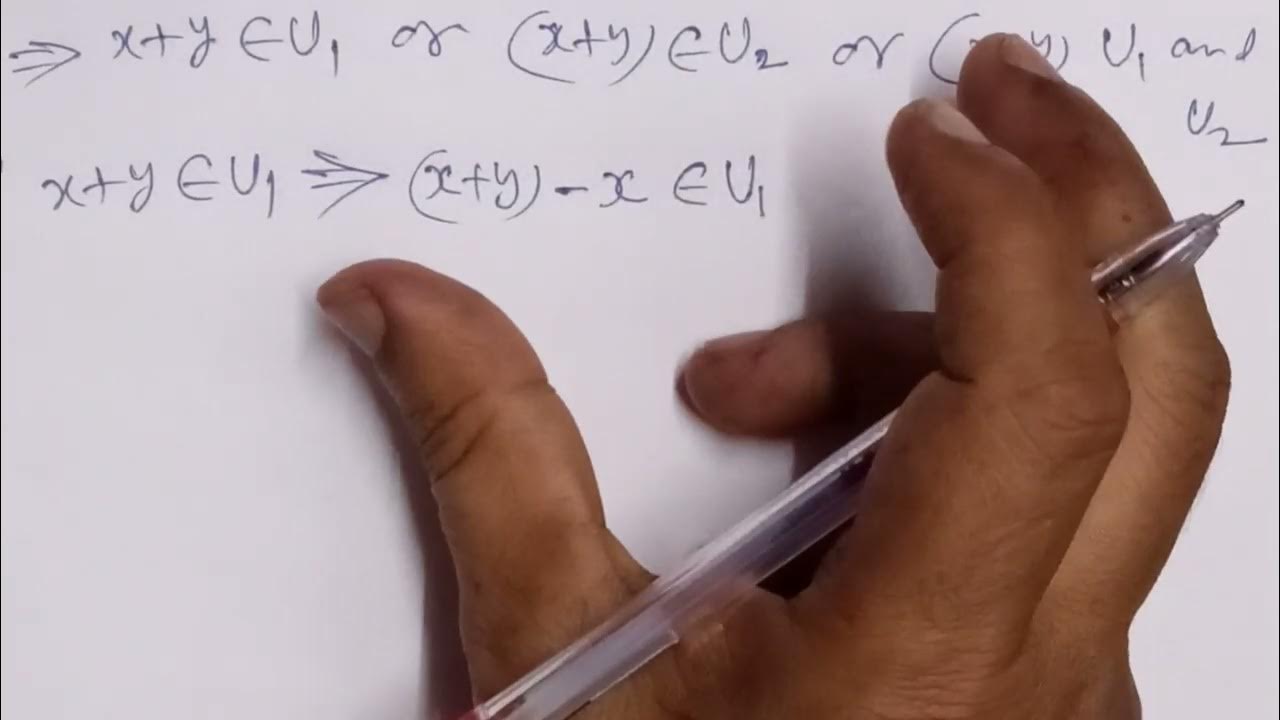 ⇒ x+y ∈ U₁ or (x+y) ∈ U₂ or (x+y) U₁ and
U₂
x+y ∈ U₁ ⇒ (x+y) - x ∈ U₁